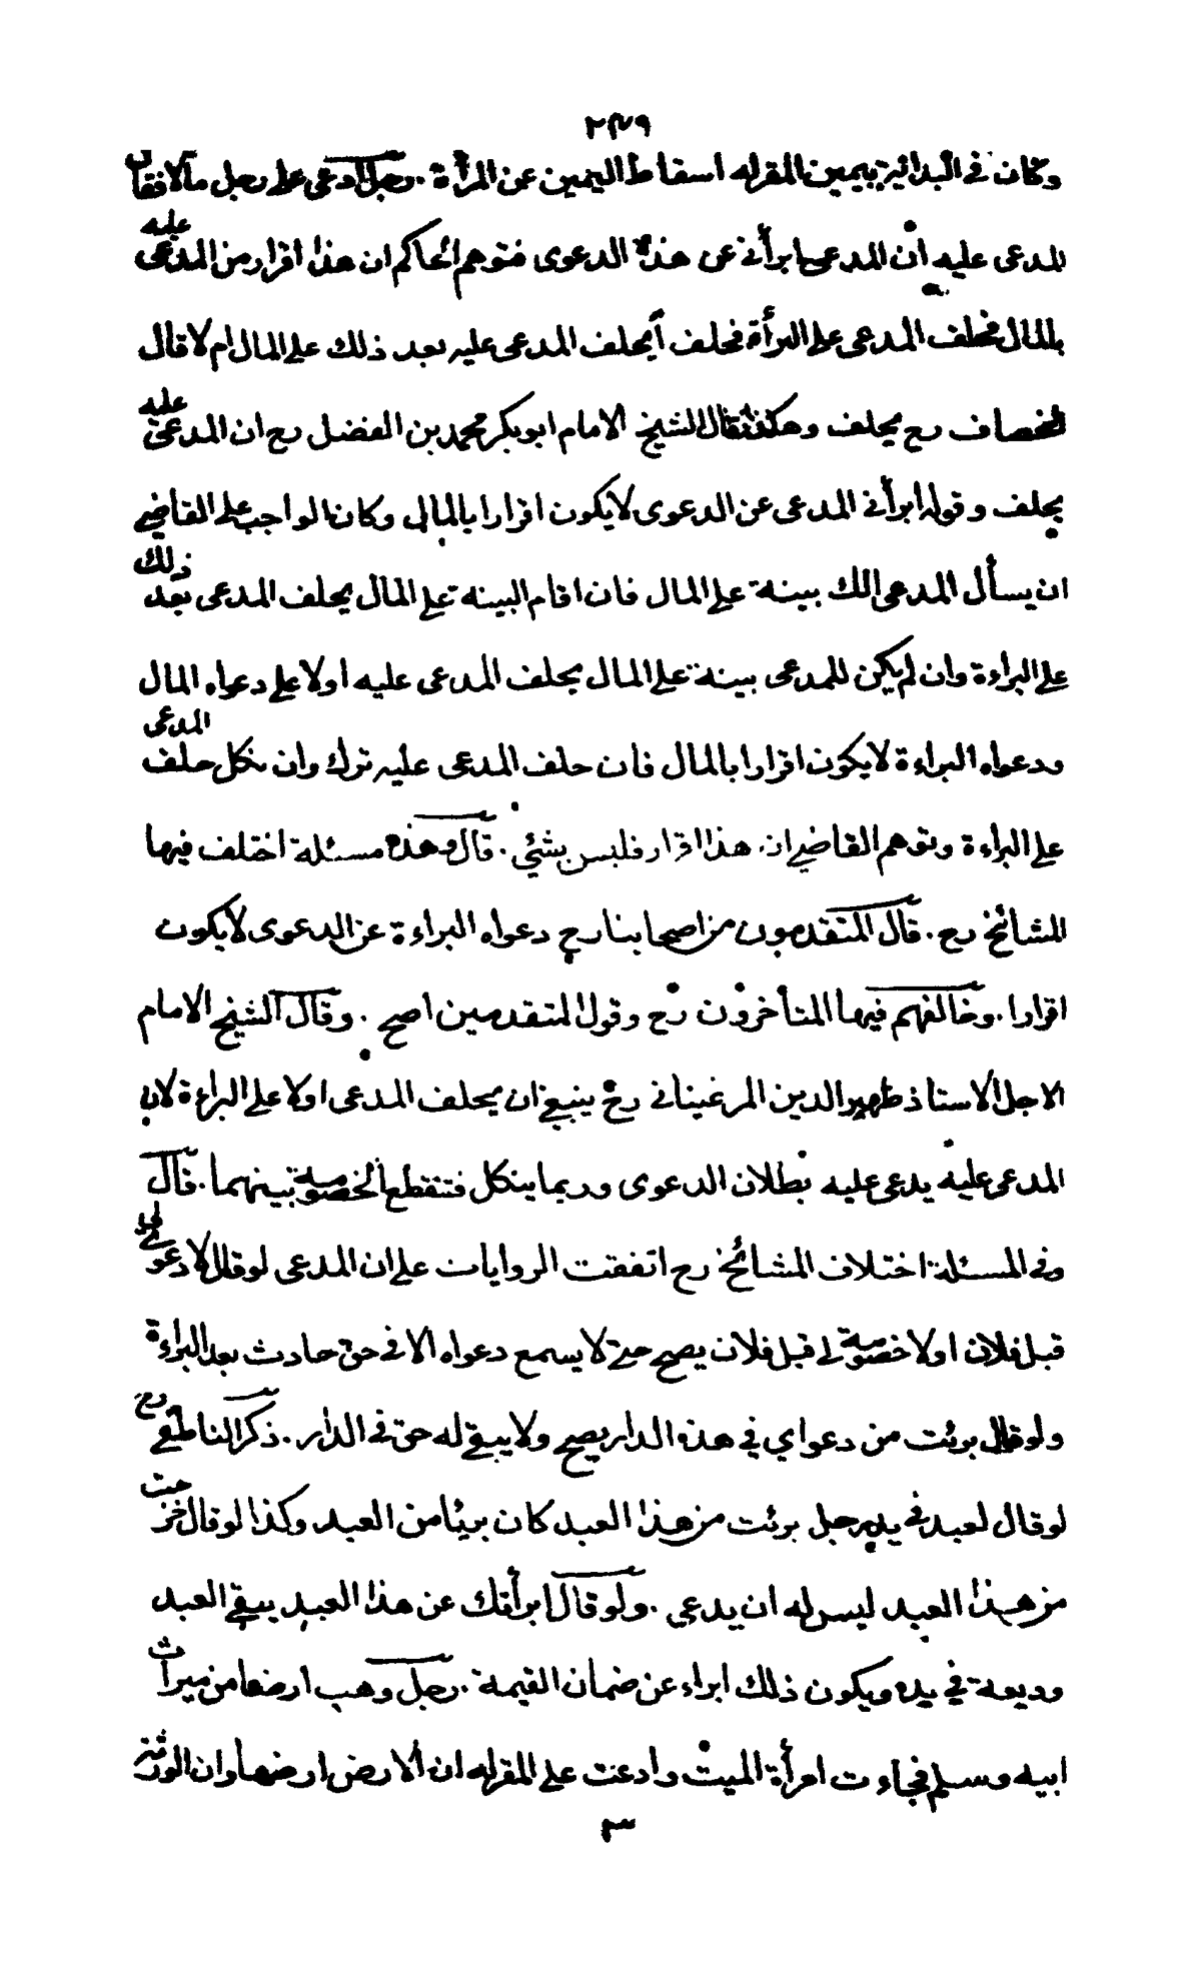 ٢٤٩
وكان في البدائية بيمين المقر له اسقاط اليمين عن المرأة . رجل ادعى على رجل مالا فقال
المدعى عليه ان المدعى ابرأني عن هذه الدعوى فتوهم الحاكم ان هذا اقرار من المدعى عليه
بالمال فحلف المدعى على البرأة فحلف أيحلف المدعى عليه بعد ذلك على المال ام لا قال
الخصاف رح يحلف وهكذا قال الشيخ الامام ابو بكر محمد بن الفضل رح ان المدعى عليه
يحلف وقوله ابرأني المدعى عن الدعوى لا يكون اقرارا بالمال وكان الواجب على القاضي
ان يسأل المدعى الك بينة على المال فان اقام البينه على المال يحلف المدعى بعد ذلك
على البراءة وان لم يكن للمدعى بينة على المال يحلف المدعى عليه اولا على دعواه المال
ودعواه البراءة لا يكون اقرارا بالمال فان حلف المدعى عليه ترك وان نكل حلف المدعى
على البراءة وتوهم القاضي ان هذا اقرار فليس بشئي . قال وهذه مسئلة اختلف فيها
المشائخ رح . قال المتقدمون من اصحابنا رح دعواه البراءة عن الدعوى لا يكون
اقرارا . وخالفهم فيها المتأخرون رح وقول المتقدمين اصح . وقال الشيخ الامام
الاجل الاستاذ ظهير الدين المرغيناني رح ينبغي ان يحلف المدعى اولا على البراءة لان
المدعى عليه يدعى عليه بطلان الدعوى وربما ينكل فتنقطع الخصومة بينهما . قال
وفي المسئلة اختلاف المشائخ رح اتفقت الروايات على ان المدعى لو قال لا دعوى لي
قبل فلان او لا خصومة لي قبل فلان يصح حتى لا يسمع دعواه الا في حق حادث بعد البراءة
ولو قال برئت من دعواي في هذه الدار يصح ولا يبقى له حق في الدار . ذكر الناطفي رح
لو قال لعبد في يد رجل برئت من هذا العبد كان بريئا من العبد وكذا لو قال خرجت
من هذا العبد ليس له ان يدعي . ولو قال ابرأتك عن هذا العبد يبقى العبد
وديعة في يده ويكون ذلك ابراء عن ضمان القيمة . رجل وهب ارضا من ميراث
ابيه وسلم فجاءت امرأة الميت وادعت على المقر له ان الارض ارضها وان الورثة
٣